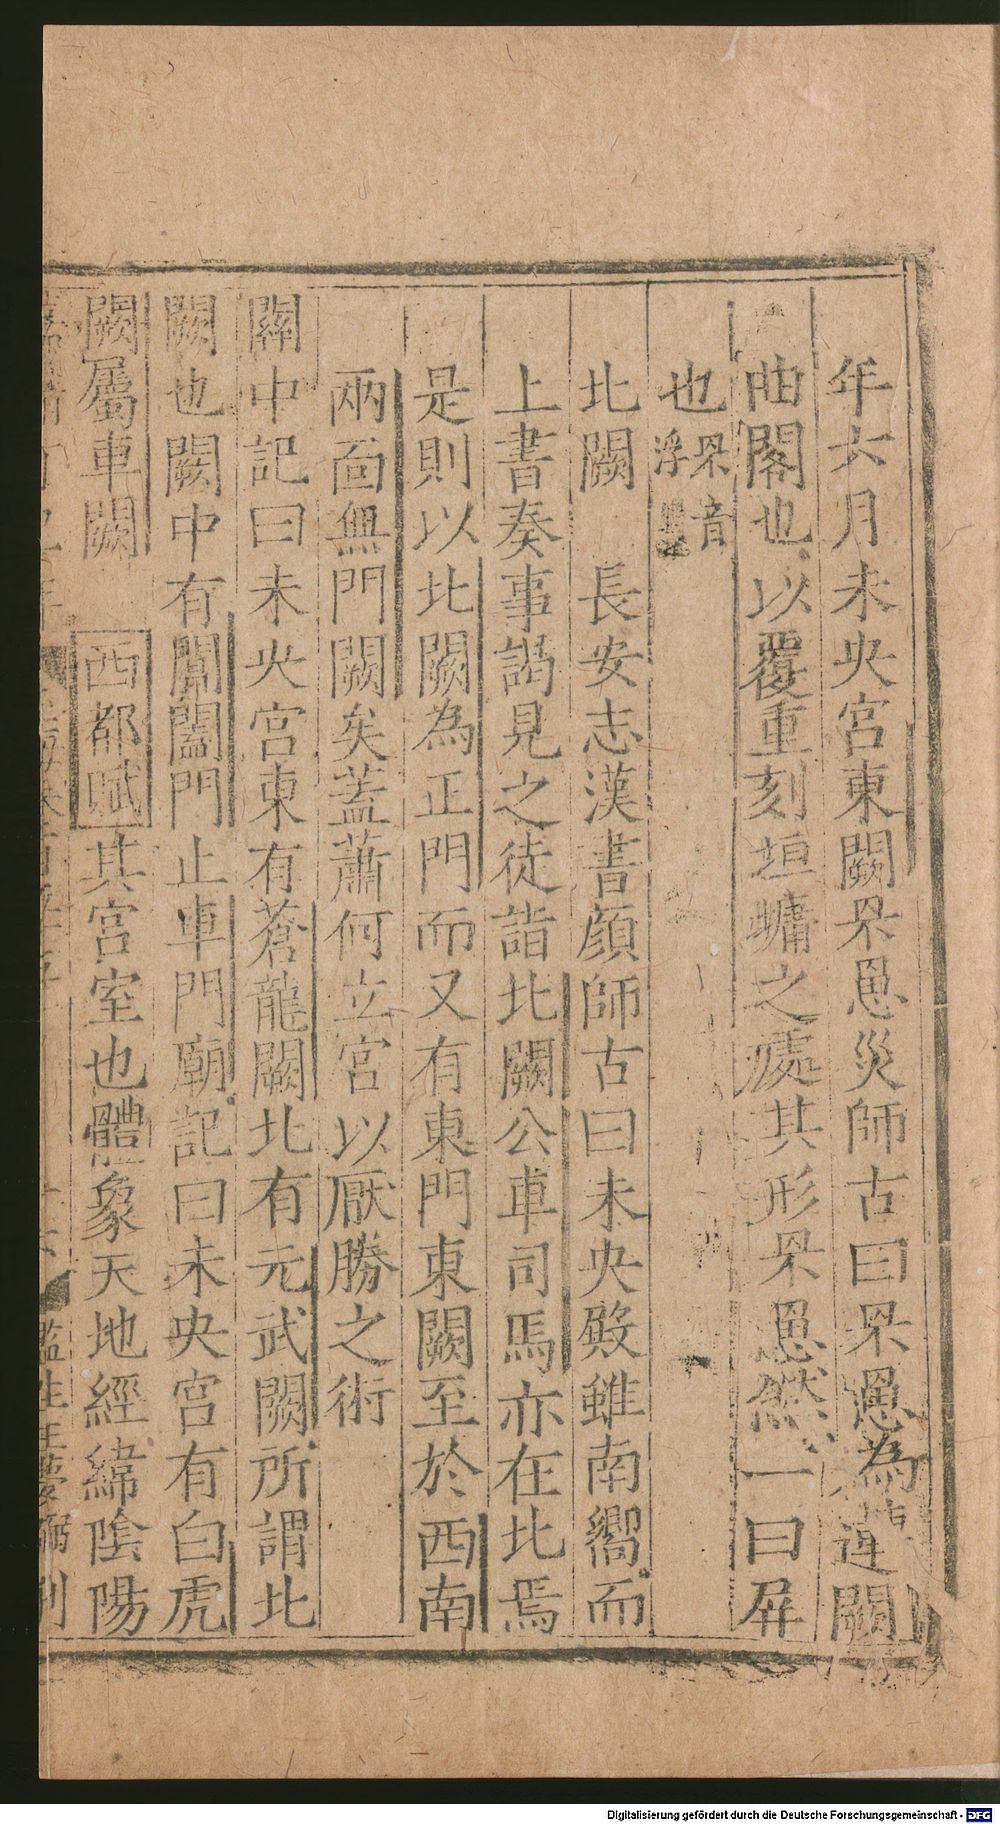 年六月未央宮東闕罘罳災師古曰罘罳為連闕
曲閣也以覆重刻垣墉之處其形罘罳然一曰屏
也罘音浮
北闕 長安志漢書顔師古曰未央殿雖南嚮而
上書奏事謁見之徒詣北闕公車司馬亦在北焉
是則以北闕為正門而又有東門東闕至於西南
兩面無門闕矣蓋蕭何立宮以厭勝之術
關中記曰未央宮東有蒼龍闕北有元武闕所謂北
闕也闕中有閶闔門止車門廟記曰未央宮有白虎
闕屬車闕 西都賦其宮室也體象天地經緯陰陽
監生王夢弼刊
Digitalisierung gefördert durch die Deutsche Forschungsgemeinschaft - DFG